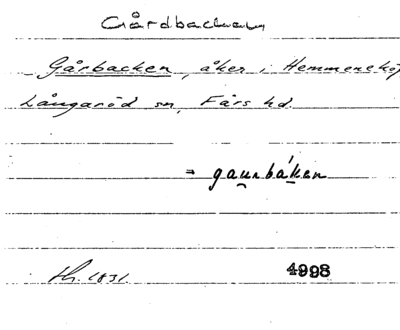 Gårdbacken
Gårbacken, åker i Hemmeneköp
Långaröd sn, Färs hd.
= gaurbáken
Sk. 1831. 4998